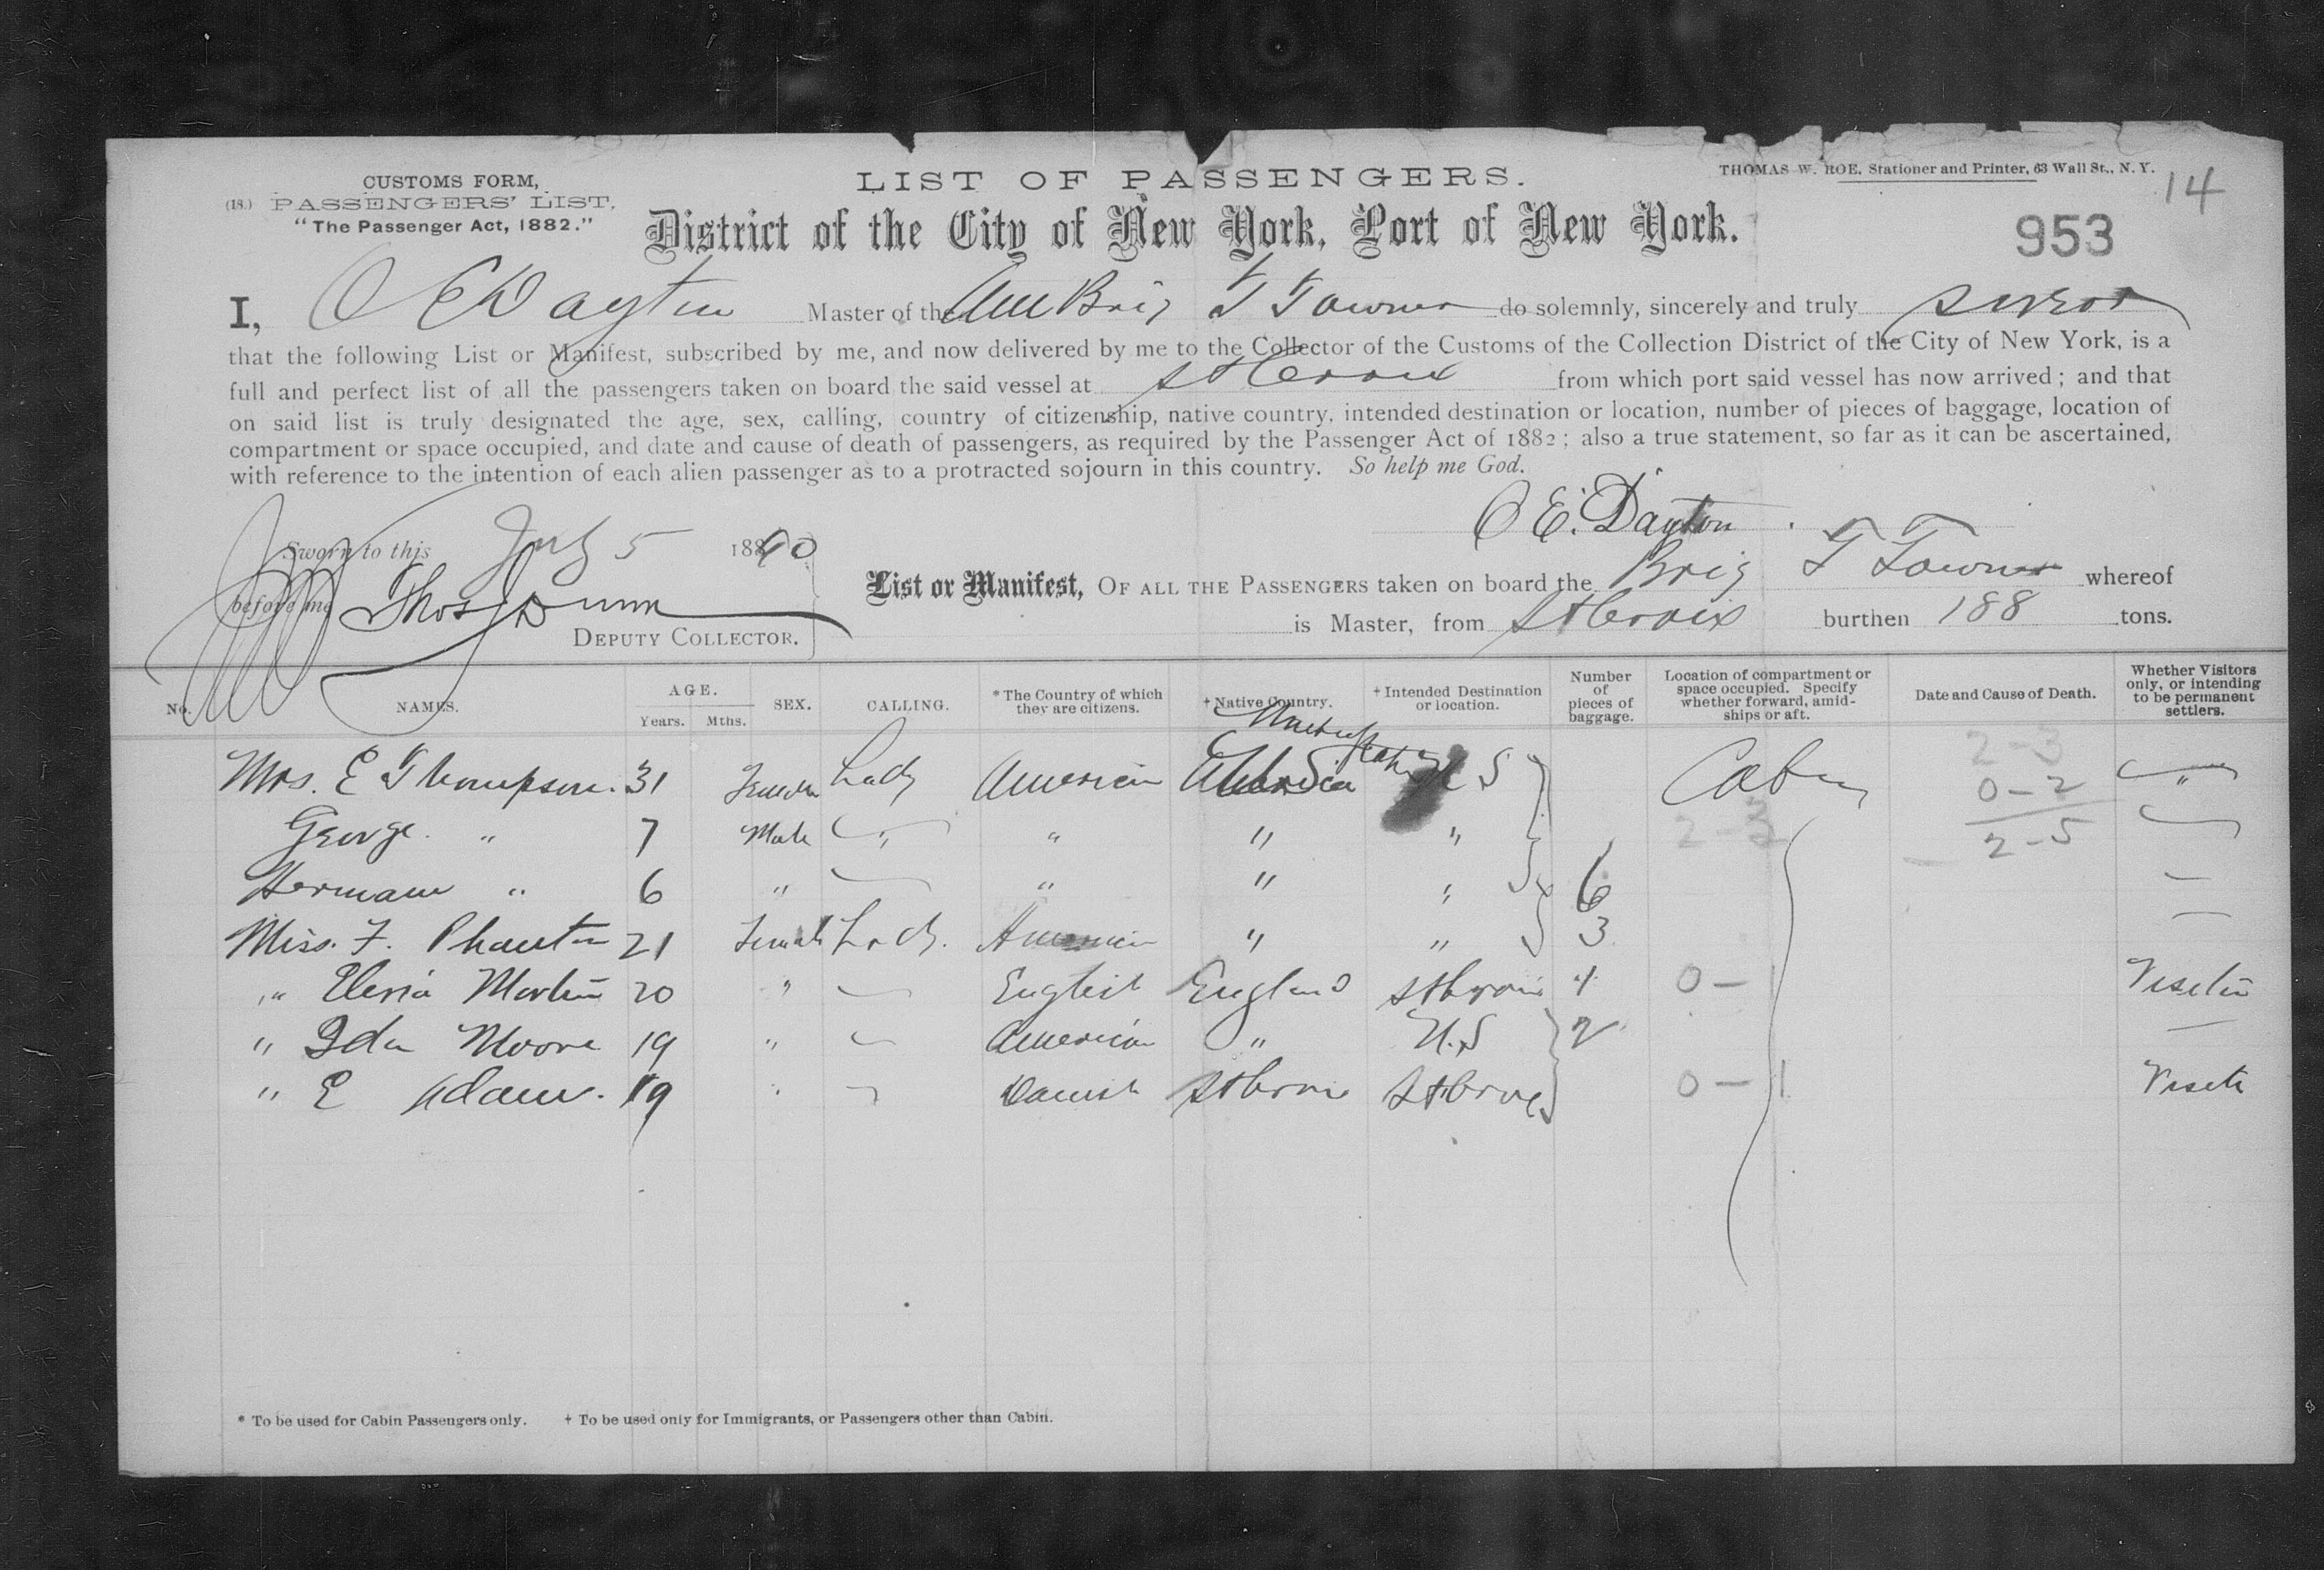 CUSTOMS FORM,
(18.) PASSENGERS' LIST,
"The Passenger Act, 1882."
LIST OF PASSENGERS.
THOMAS W. ROE, Stationer and Printer, 63 Wall St., N. Y.
14
District of the City of New York, Port of New York.
953
I, O E Dayton Master of the Am Brig T Towner do solemnly, sincerely and truly swear
that the following List or Manifest, subscribed by me, and now delivered by me to the Collector of the Customs of the Collection District of the City of New York, is a
full and perfect list of all the passengers taken on board the said vessel at St Croix from which port said vessel has now arrived; and that
on said list is truly designated the age, sex, calling, country of citizenship, native country, intended destination or location, number of pieces of baggage, location of
compartment or space occupied, and date and cause of death of passengers, as required by the Passenger Act of 1882; also a true statement, so far as it can be ascertained,
with reference to the intention of each alien passenger as to a protracted sojourn in this country. So help me God.
O E. Dayton
Sworn to this July 5 1890
before me Thos Dunn
DEPUTY COLLECTOR.
List or Manifest, OF ALL THE PASSENGERS taken on board the Brig T Towner whereof
is Master, from St Croix burthen 188 tons.
No. NAMES. AGE. Years. Mths. SEX. CALLING. * The Country of which they are citizens. † Native Country. † Intended Destination or location. Number of pieces of baggage. Location of compartment or space occupied. Specify whether forward, amidships or aft. Date and Cause of Death. Whether Visitors only, or intending to be permanent settlers.
2-3
Mrs. E Thompson. 31 Female Lady American U S Cabin 0-2 "
George. " 7 Male " " " " 2-3 2-5
Hermann " 6 " " " " 6
Miss. F. 21 Female Lady. American " " 3
" Martin 20 " English England St Croix 1 0-1
" Ida Moore 19 " American " U.S 2
" E Adams. 19 " Danish St Croix St Croix 0-1
* To be used for Cabin Passengers only. † To be used only for Immigrants, or Passengers other than Cabin.